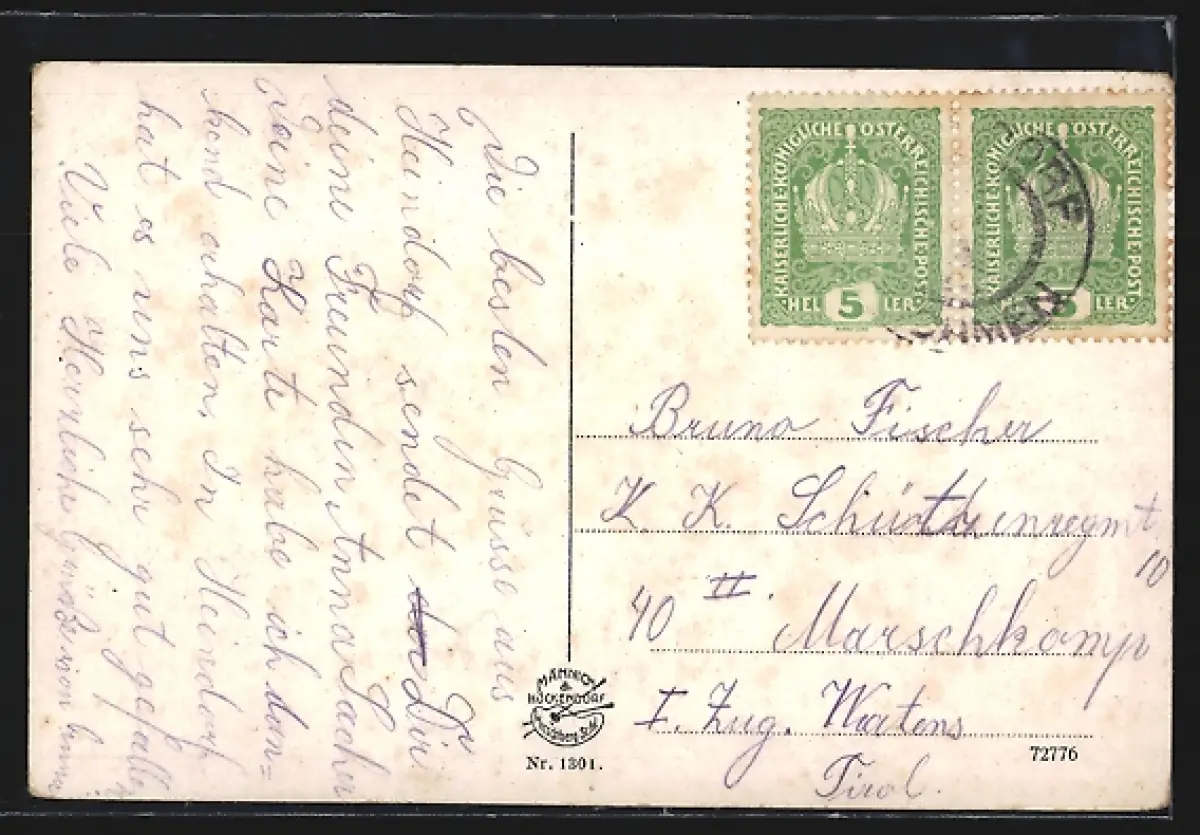 Die besten Grüsse aus
Heindorf sendet Dir
deine Freundin Anna Sacher
Deine Karte habe ich dan=
kend erhalten, In Heindorf
hat es uns sehr gut gefalle
Viele Herzliche Grüße von
KAISERLICHE·KÖNIGLICHE ÖSTERREICHISCHE·POST·
HEL 5 LER·
KAISERLICHE·KÖNIGLICHE ÖSTERREICHISCHE·POST·
5 LER·
DORF
BÖHMEN
Bruno Fischer
K. K. Schützenregmt
10
40 II. Marschkomp
I. Zug. Watens
Tirol.
MÄNNICH
&
HÖCKENDORF
Hirschberg Schl.
Nr. 1301.
72776